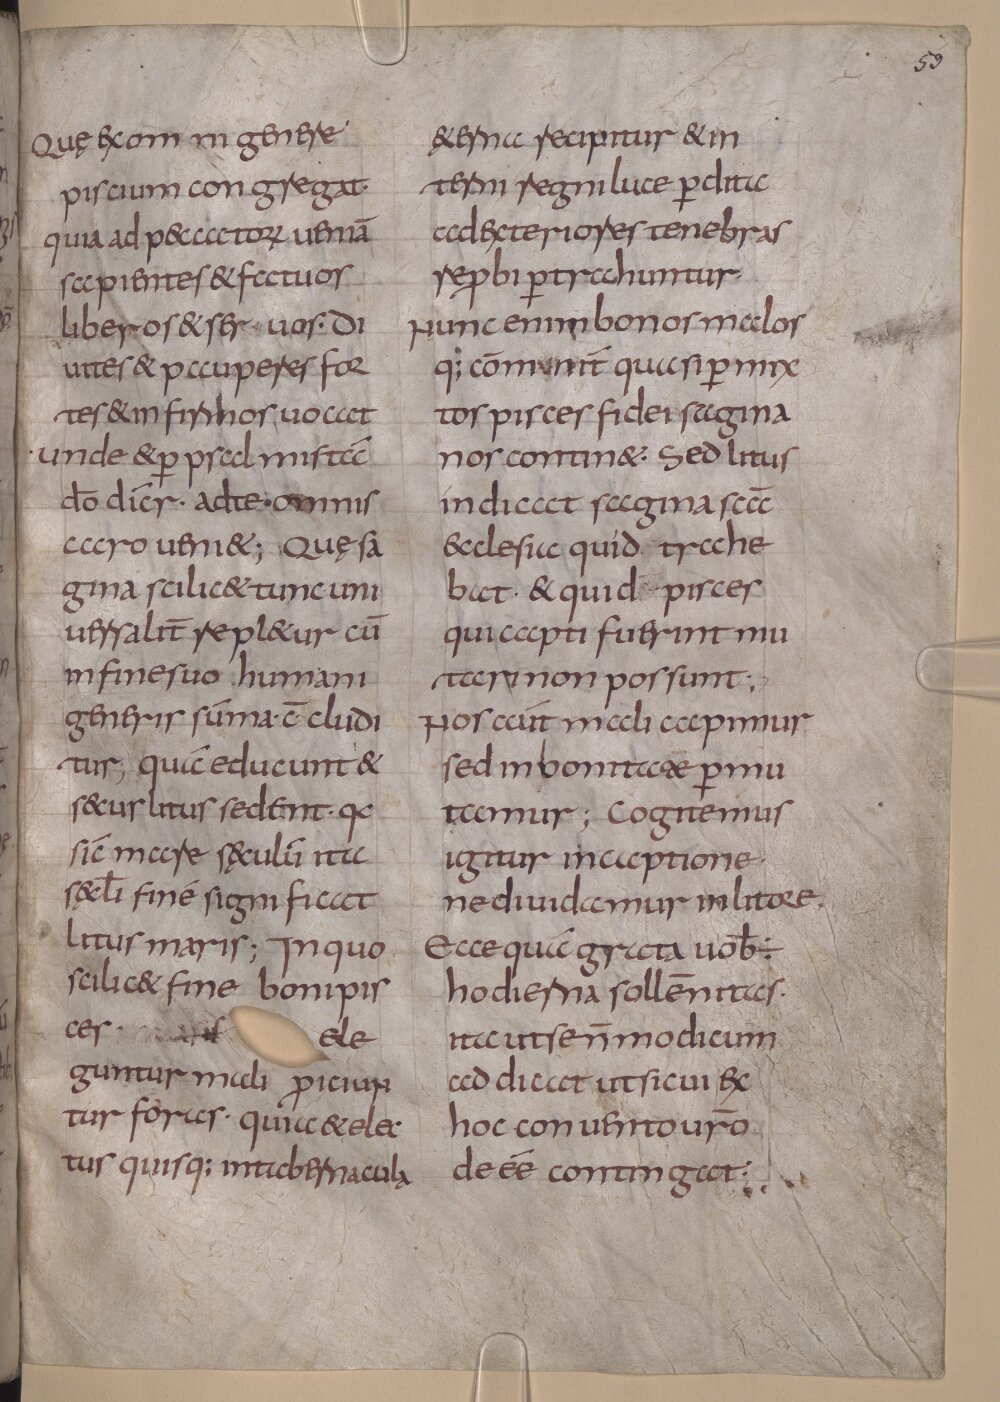 59
Quę ex om̄ in genere
piscium congregat·
quia ad peccatoꝝ ueniā
sapientes & fatuos
liberos & ser uos· Di
uites & pauperes for
tes & infirmos uocat
unde & ꝑ psalmistā
dō dicr̄· ad te· omnis
caro ueni&; Quę sa
gina scilic& tunc uni
uersalit̄ repl&ur cū
in fine suo humani
generis sūma· ē cludi
tur; quā educunt &
secus litus sedent· qa
sic̄ mare sęculū ita
sęcl̄i finē significat
litus maris; In quo
scilic& fine boni pis
ces ele
guntur mali ꝓiciun
tur foras· quia & elec
tus quisq; in tabernacula
&erna recipitur & in
terni regni luce ꝑdita
ad exteriores tenebras
reꝓbi ꝑtrahuntur·
Nunc enim bonos malos
q; cōmunit̄ quasi ꝑmix
tos pisces fidei sagina
nos contin&· Sed litus
indicat sagina scāe
&clesia quid trahe
bat· & quid pisces
qui capti fuerint mu
tari non possunt;
Nos aūt mali capimur
sed in bonitate ꝑmu
tamur; Cogitemus
igitur in captione·
ne diuidamur in litore.
Ecce quā grata uob̄·
hodierna sollēnitas·
ita ut se n̄ modicum
addicat ut si cui ex
hoc conuento ur̄o
deēē contingat;